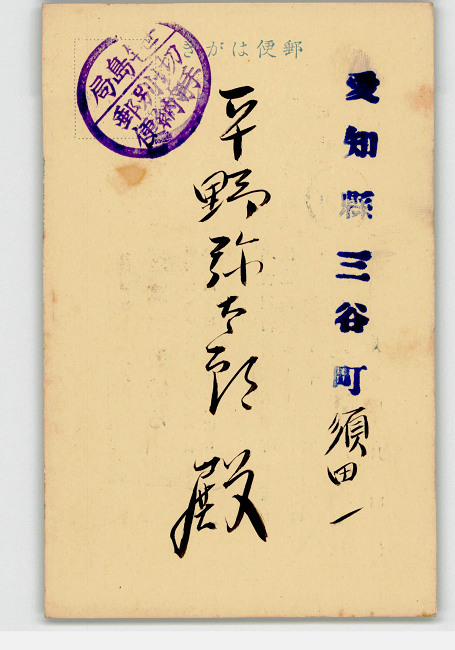 郵便はがき
愛知縣三谷町須田一
平野弥太郎殿
島局
切手
別納
郵便